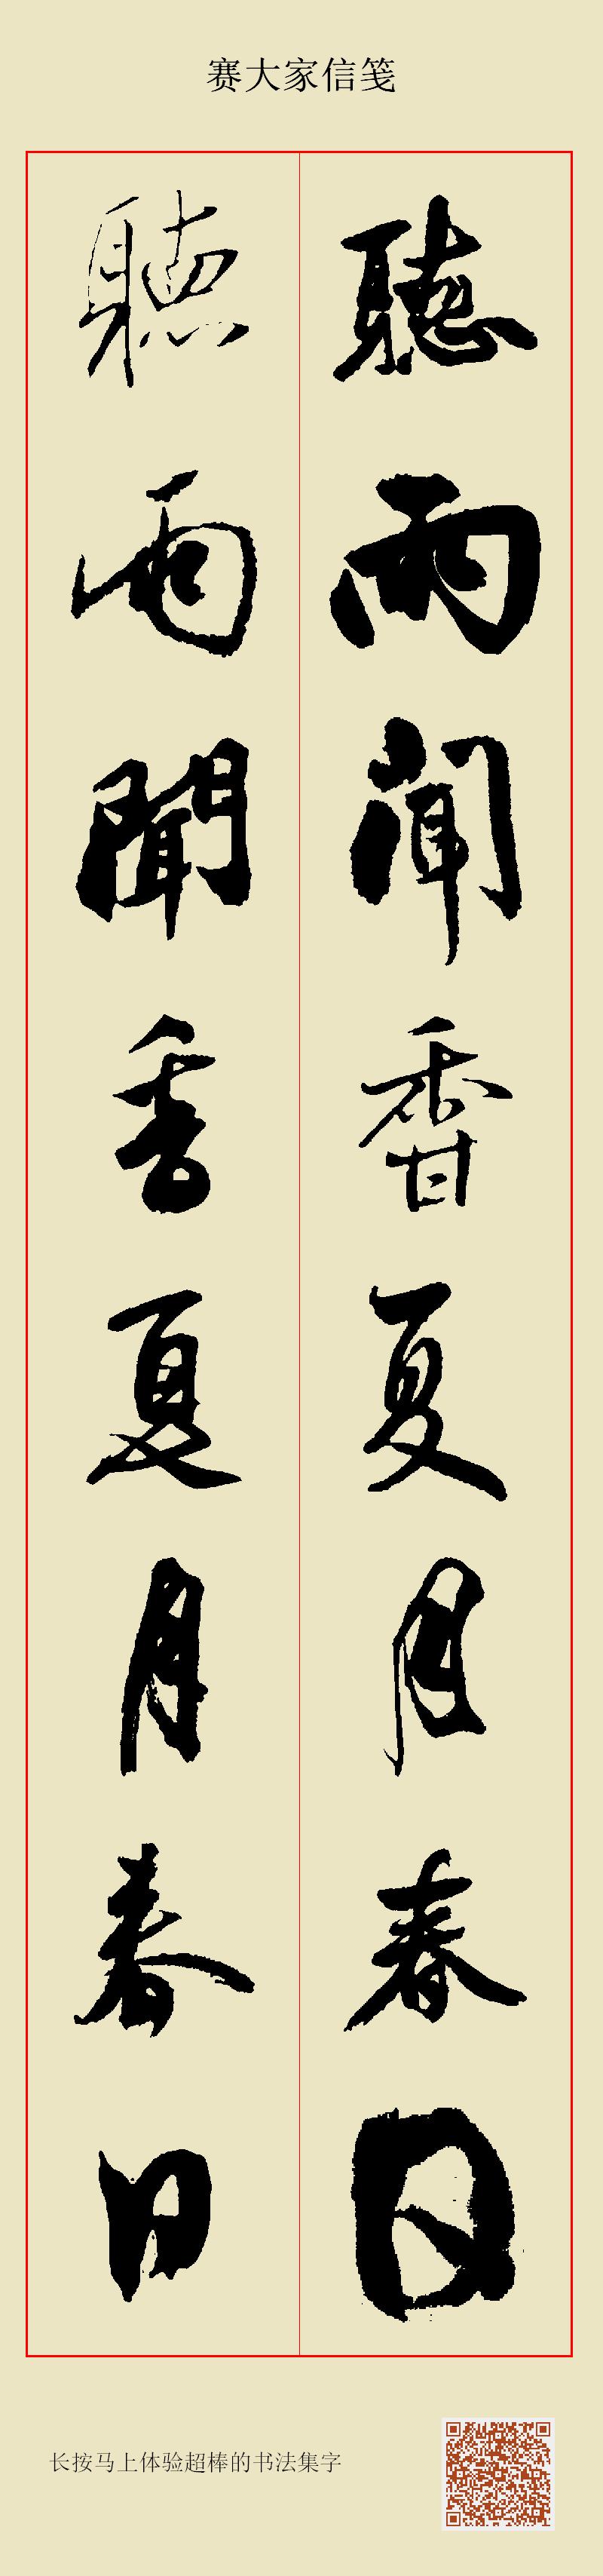 赛大家信笺
聽雨聞香夏月春日
聽雨聞香夏月春日
长按马上体验超棒的书法集字